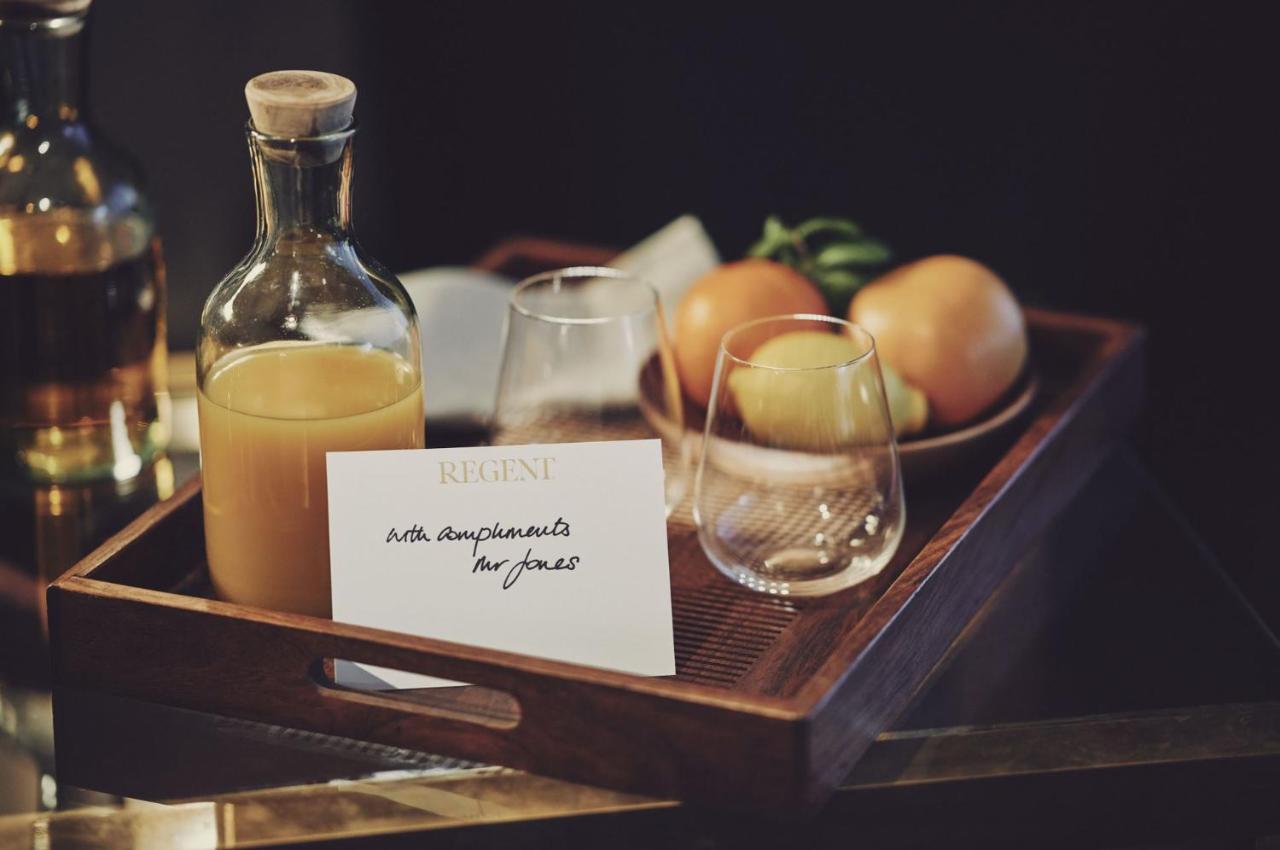 REGENT
with compliments
Mr Jones